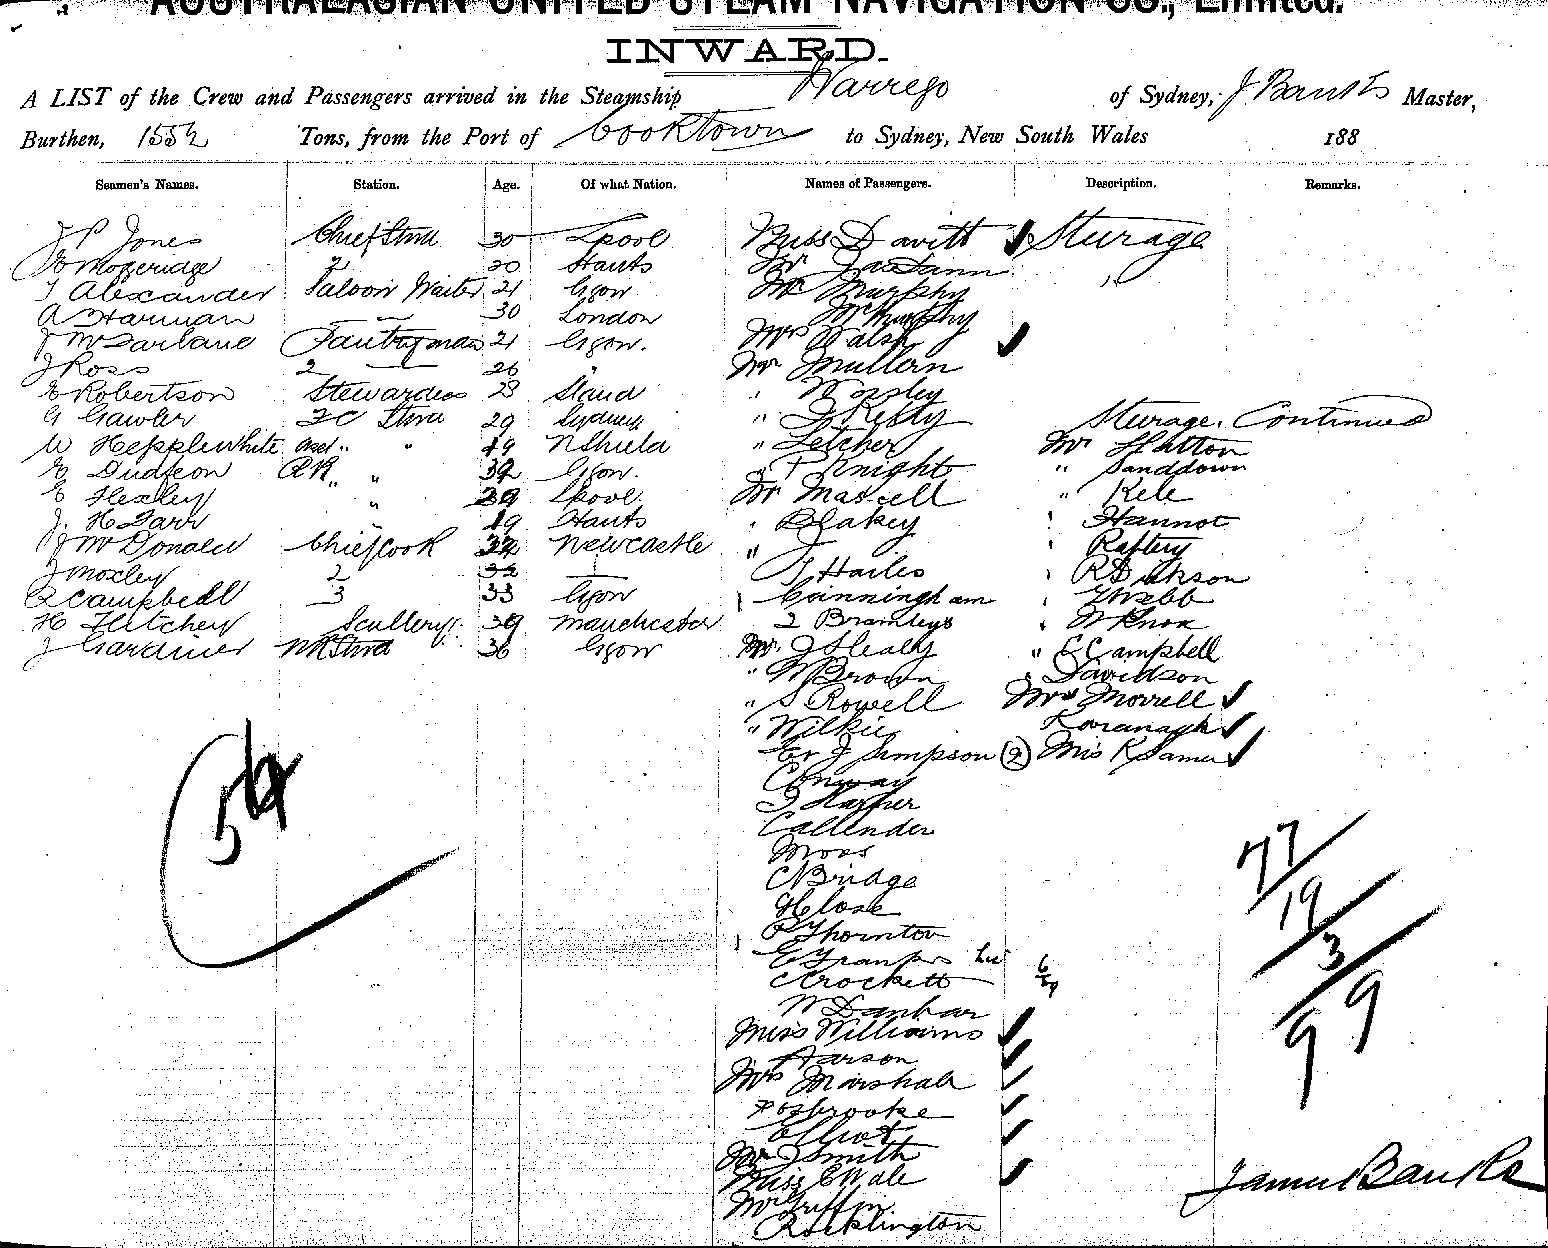 AUSTRALASIAN UNITED STEAM NAVIGATION CO., Limited.
INWARD.
A LIST of the Crew and Passengers arrived in the Steamship Warrego of Sydney, J Banks Master,
Burthen, 1552 Tons, from the Port of Cooktown to Sydney, New South Wales 188
Seamen's Names. Station. Age. Of what Nation. Names of Passengers. Description. Remarks.
J P Jones Chief Stwd 30 Lpool Miss Davitt Sturage
Mogeridge 2 30 Hants Mr "
J Alexander Saloon Waiter 21 Lgow Mr Murphy
A Harman " 30 London Mr Murphy
J McFarlane Pantryman 21 Lgow. Mrs Walsh
J Ross 2 " 26 " Mr Mullern
E Robertson Stewardess 28 Staud " Worsley
G Gawler F C Stwd 29 Sydney " J Kelly Sturage. Continued
W Hepplewhite asst " " 19 N Shield " Letcher Mr Hutton
E Dudgeon RR " " 32 Lgow. " P Knight " Sanddown
E Hexley " 29 Lpool Mr Maxsell " Kele
J. H Farr " 19 Hants " Blakey " Hannot
J McDonald Chief Cook 32 Newcastle " J " Raftery
J Moxley 2 32 T Hailes " R Dickson
R Campbell 3 33 Lgow " Cunningham " Webb
H Fletcher Scullery 39 Manchester 2 Bramleys " W Knox
J Gardiner NR Stwd 36 Lgow Mr. J Healy " C Campbell
" W Brown " Davidson
" S Rowell Mrs Morrell
" Wilkie Kavanagh
J Simpson (2) Mis K James
Conway
J Harper
Callender
Moss
C Bridge
H Close
P Thornton
C Crockett
W Dunbar
Miss Williams
Aarson
Mrs Marshall
Fosbrooke
Elliot
Mr J Smith
Miss E Wale
Mr Griffin
Rocklington
54
77
19
3
99
James Banks